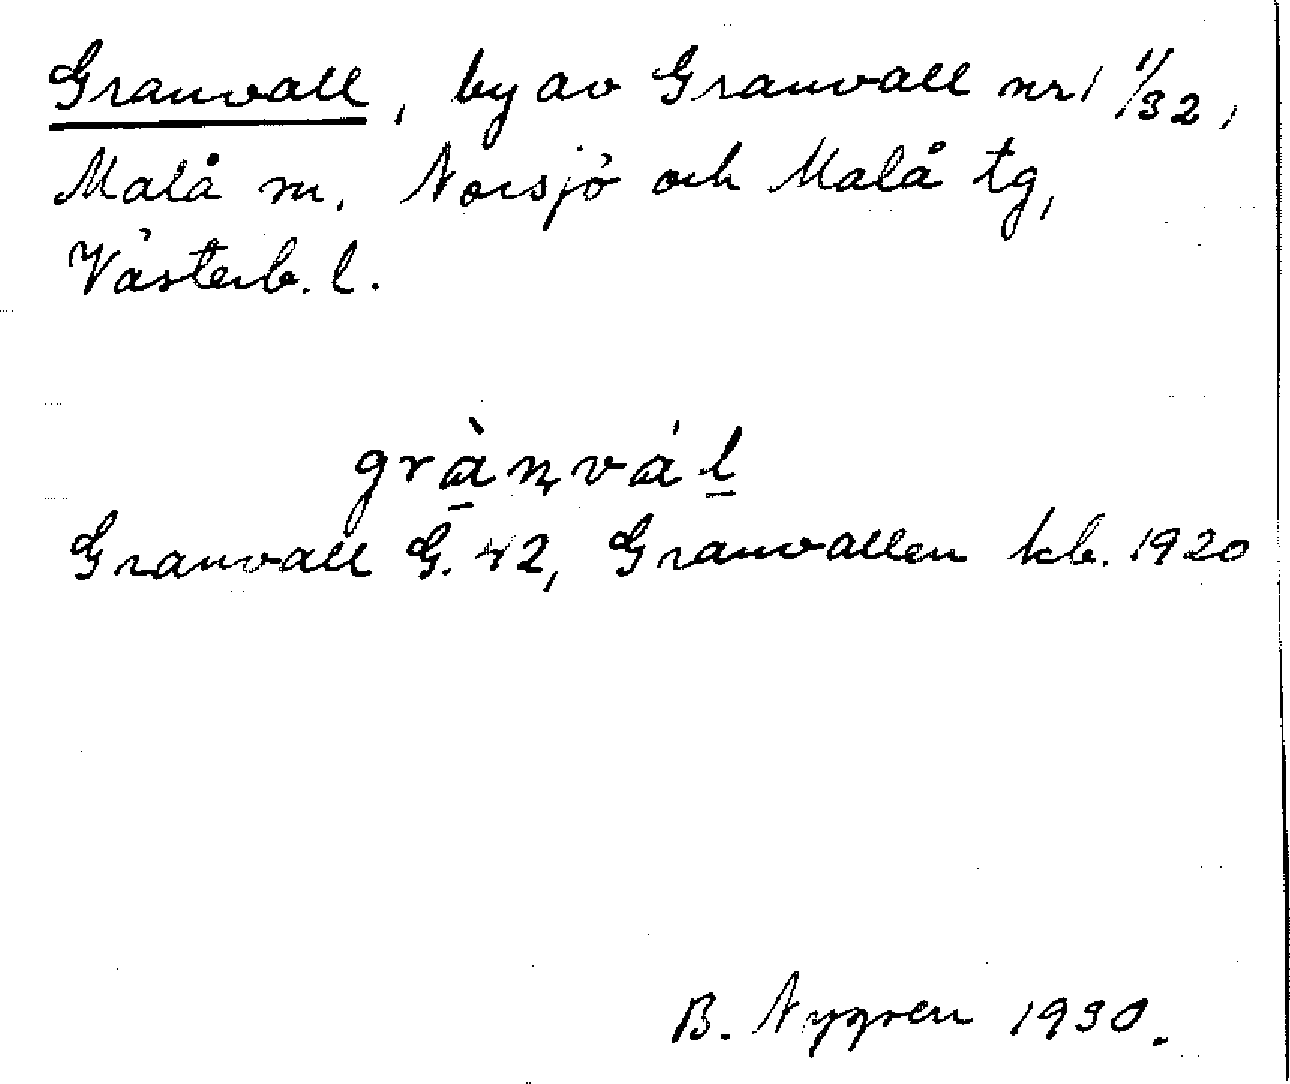 Granvall, by av Granvall nr 1 11/32,
Malå sn. Norsjö och Malå tg,
Västerb. l.
gràn̥vál̲
Granvall G. 42, Granvallen kb. 1920
B. Nygren 1930.